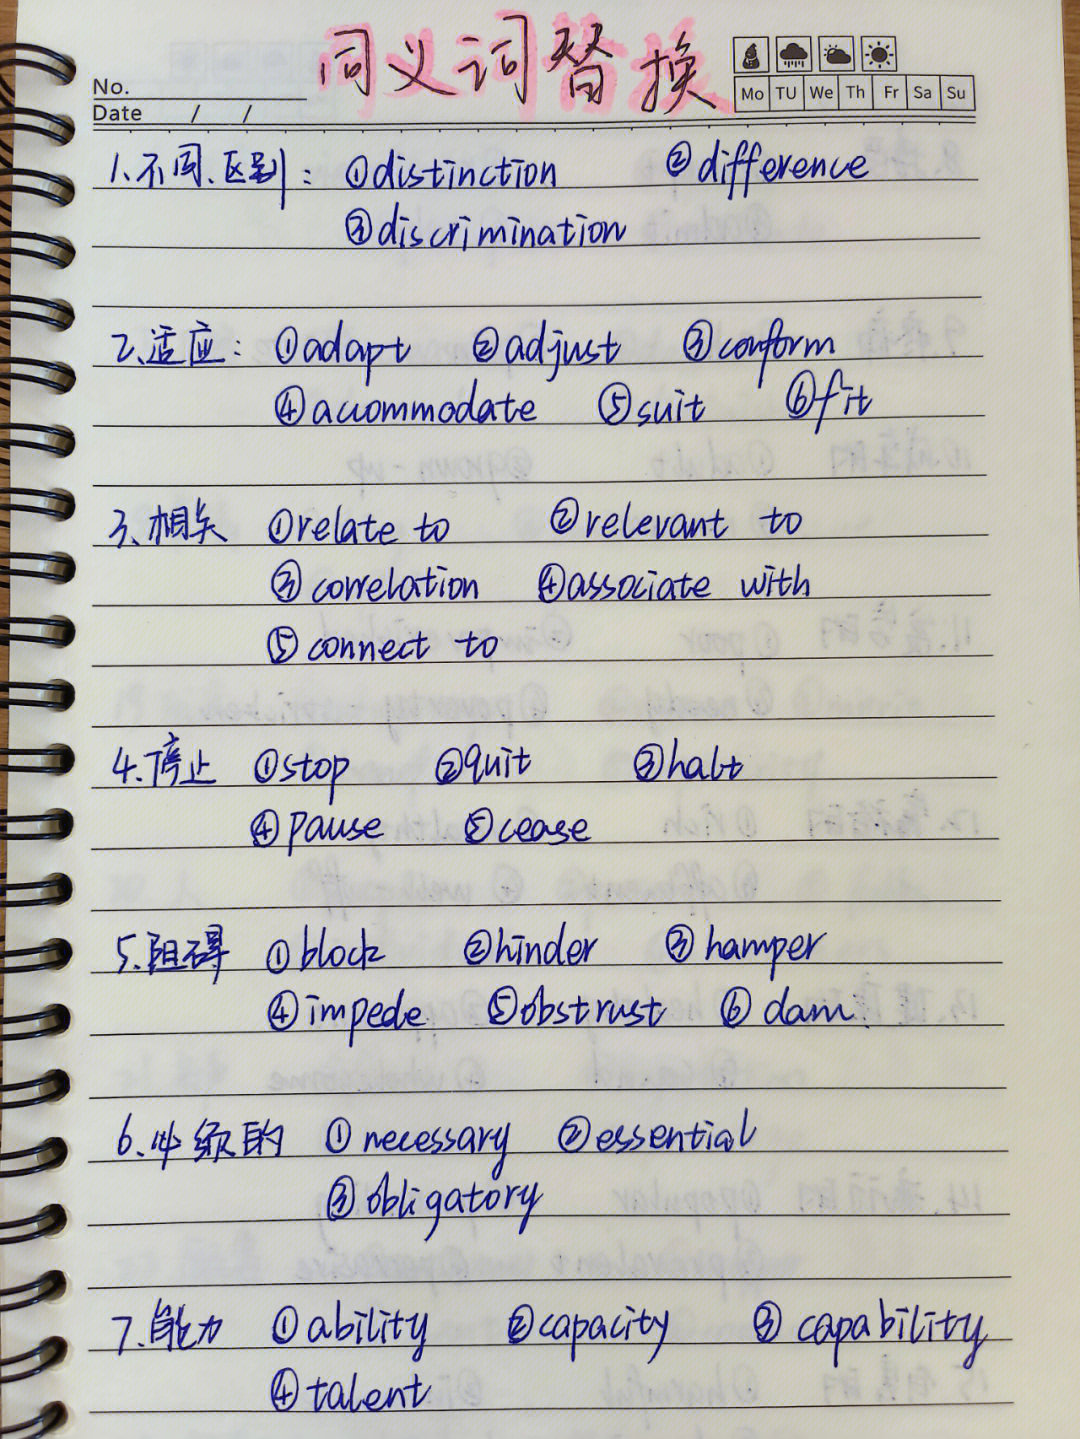 同义词替换
No.
Date / /
Mo TU We Th Fr Sa Su
1.不同、区别: ①distinction ②difference
③discrimination
2.适应: ①adapt ②adjust ③conform
④accommodate ⑤suit ⑥fit
3.相关 ①relate to ②relevant to
③correlation ④associate with
⑤connect to
4.停止 ①stop ②quit ③halt
④pause ⑤cease
5.阻碍 ①block ②hinder ③hamper
④impede ⑤obstrust ⑥dam
6.必须的 ①necessary ②essential
③obligatory
7.能力 ①ability ②capacity ③capability
④talent